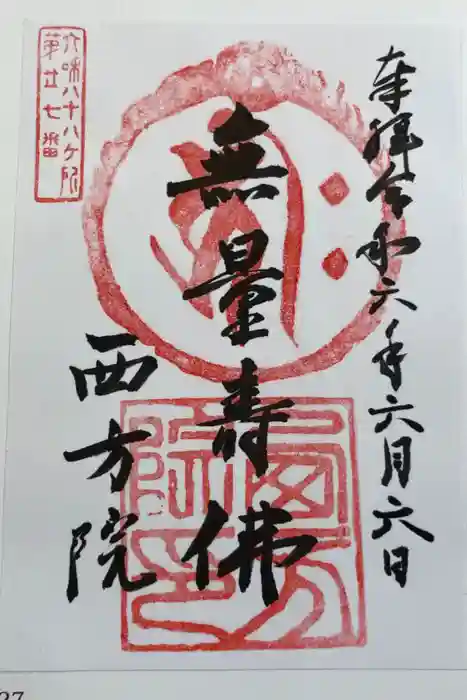 奉拝 令和六年六月六日
無量壽佛
西方院
八十八ケ所
第廿七番
西方
院印
27